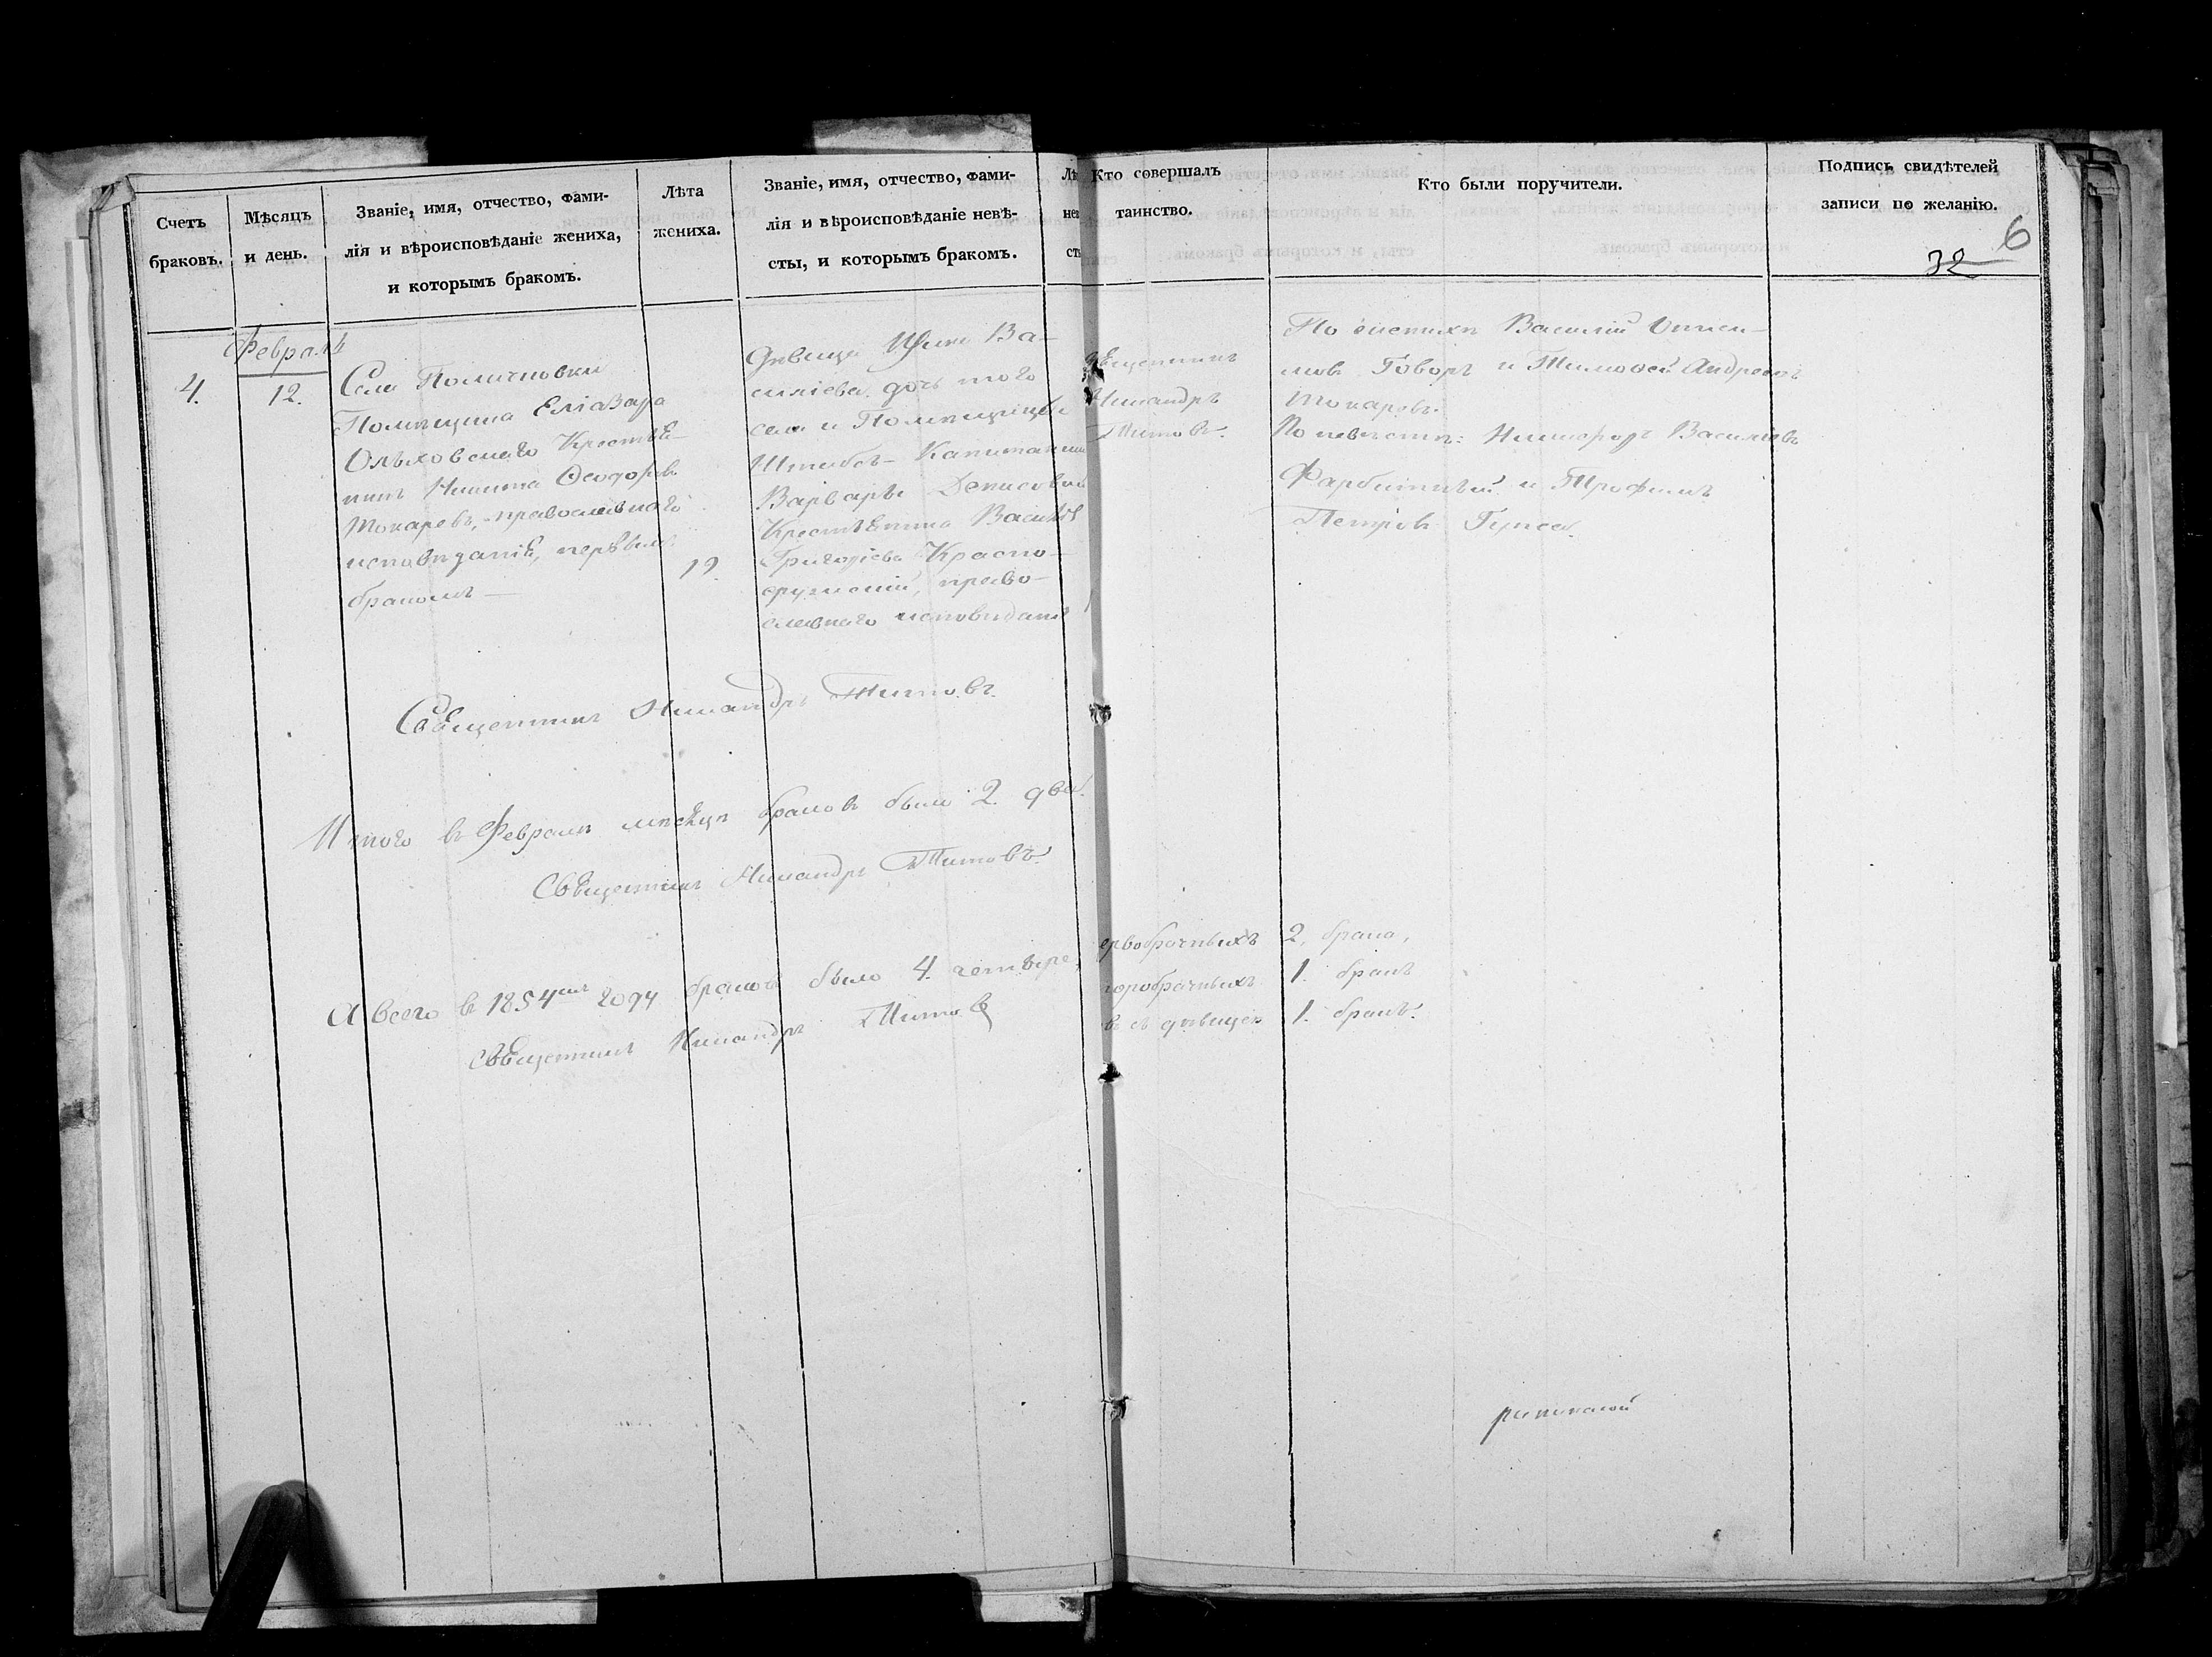 Счетъ
браковъ.
Мѣсяцъ
и день.
Званіе, имя, отчество, фами-
лія и вѣроисповѣданіе жениха,
и которымъ бракомъ.
Лѣта
жениха.
Званіе, имя, отчество, фами-
лія и вѣроисповѣданіе невѣ-
сты, и которымъ бракомъ.
Кто совершалъ
таинство.
Кто были поручители.
Подпись свидѣтелей
записи по желанію.
6
32
Февраль
4.
12.
Села
Помѣщика
Крестья-
нинъ Никита Ѳеодоровъ
Токаревъ, православнаго
исповѣданія, первымъ
бракомъ
19.
Дѣвица Ва-
силіева дочь того
села и Помѣщицы
Штабсъ-Капитанши
Варвары Денисовой
Крестьянина Василія
Григоріева Красно-
право-
славнаго исповѣданія
Никандръ
Титовъ.
По женихѣ Василій
Говоръ и Тимоѳей Андреевъ
Токаревъ.
По невѣстѣ: Никифоръ Василіевъ
и Трофимъ
Петровъ
Священникъ Никандръ Титовъ.
Итого въ Февралѣ мѣсяцѣ браковъ было 2. два.
Священникъ Никандръ Титовъ.
А всего въ 1854мъ году браковъ было 4. четыре,
Священникъ Никандръ Титовъ
ервобрачныхъ 2, брака,
торобрачныхъ 1. бракъ
въ съ дѣвицею 1. бракъ.